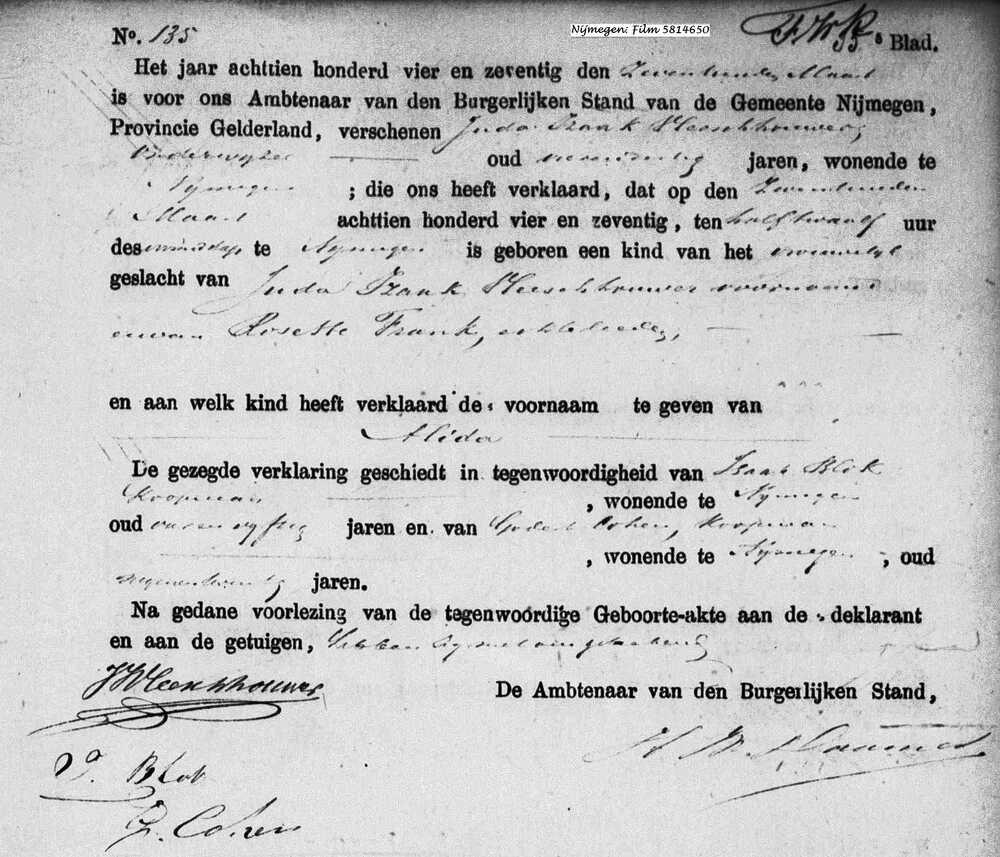 Nijmegen: Film 5814650
No. 135 Blad.
Het jaar achttien honderd vier en zeventig den Maart
is voor ons Ambtenaar van den Burgerlijken Stand van de Gemeente Nijmegen,
Provincie Gelderland, verschenen Juda Izaak Vleeschhouwer,
Onderwijzer oud jaren, wonende te
Nijmegen ; die ons heeft verklaard, dat op den
Maart achttien honderd vier en zeventig, ten half twaalf uur
des te Nijmegen is geboren een kind van het vrouwelijk
geslacht van Juda Izaak Vleeschhouwer voornoemd
en van Rosette Frank, echtelieden,
en aan welk kind heeft verklaard de voornaam te geven van
Alida
De gezegde verklaring geschiedt in tegenwoordigheid van Izaak Blok
Koopman , wonende te Nijmegen
oud jaren en van Cohen, Koopman
, wonende te Nijmegen , oud
negenentwintig jaren.
Na gedane voorlezing van de tegenwoordige Geboorte-akte aan de deklarant
en aan de getuigen, hebben
JVleeschhouwer De Ambtenaar van den Burgerlijken Stand,
Blok
Cohen